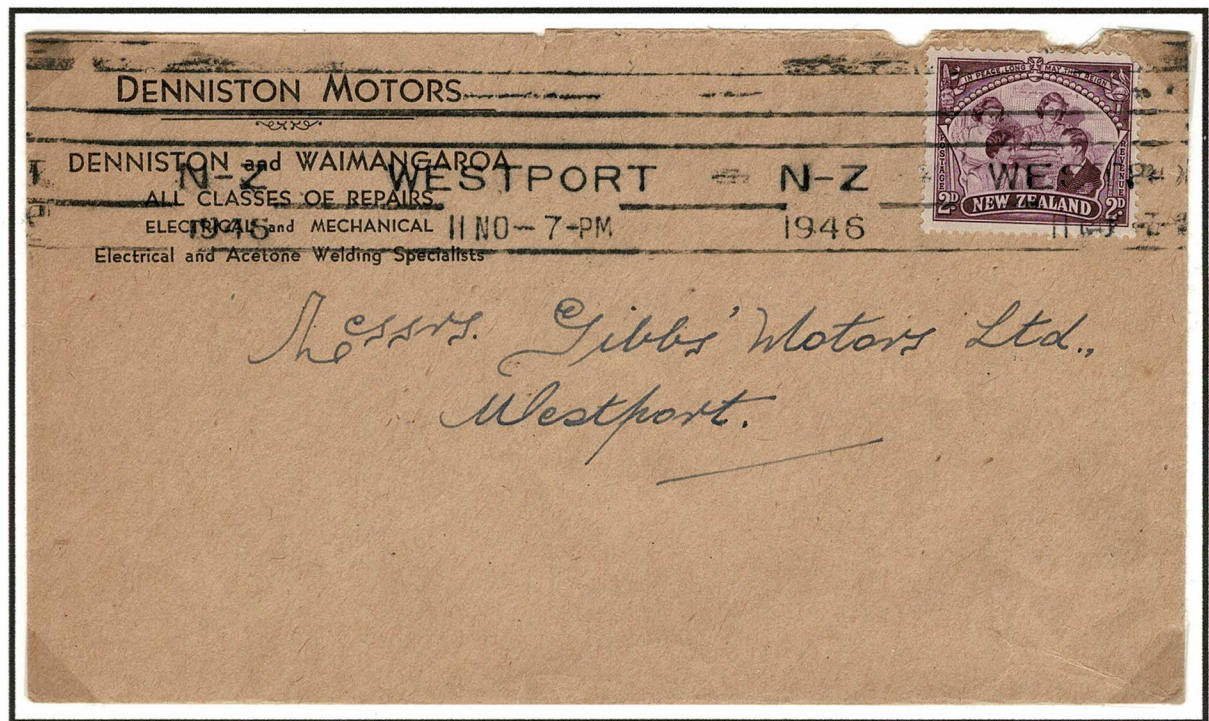 DENNISTON MOTORS
DENNISTON and WAIMANGAROA
ALL CLASSES OF REPAIRS
ELECTRICAL and MECHANICAL
Electrical and Acetone Welding Specialists
N-Z WESTPORT = N-Z WE
1946 11 NO - 7-PM 1946 11
IN PEACE, LONG MAY THEY REIGN
POSTAGE
REVENUE
2D NEW ZEALAND 2D
Messrs. Gibbs' Motors Ltd.,
Westport.